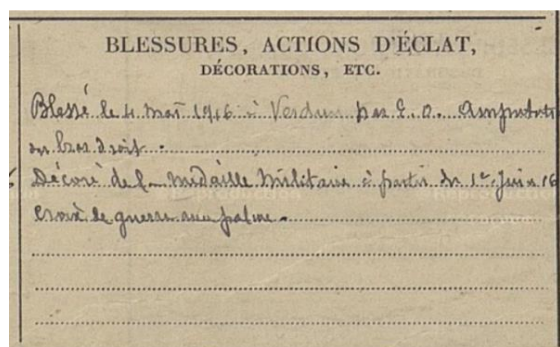 BLESSURES, ACTIONS D'ÉCLAT,
DÉCORATIONS, ETC.
Blessé le 4 mai 1916 à Verdun par E. O. Amputation
du bras droit.
Décoré de la Médaille Militaire à partir du 1er Juin 16
Croix de guerre avec palme.